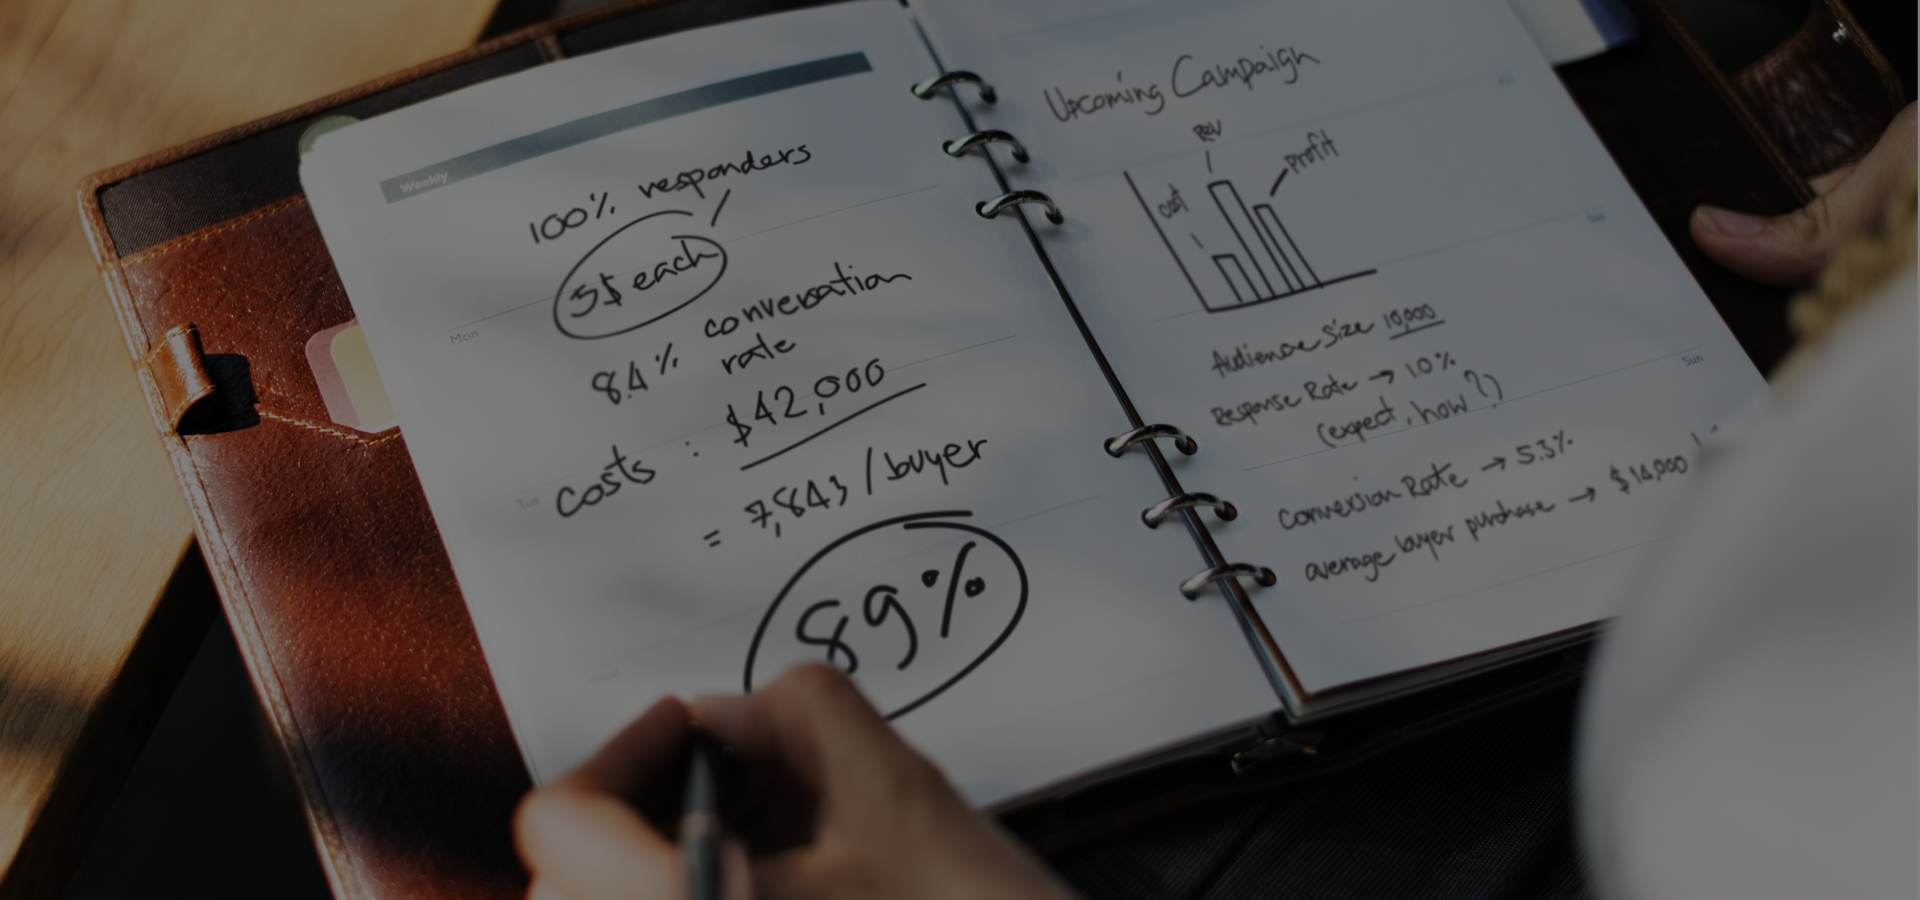 Weekly
100% responders
5$ each
8.4% conversation
rate
costs : $42,000
= 7,843 / buyer
89%
Mon
Tue
Upcoming Campaign
Rev
Profit
cost
Audience Size 10,000
Response Rate → 1.0%
(expect, how?)
Conversion Rate → 5.3%
average buyer purchase → $14,000
Sun